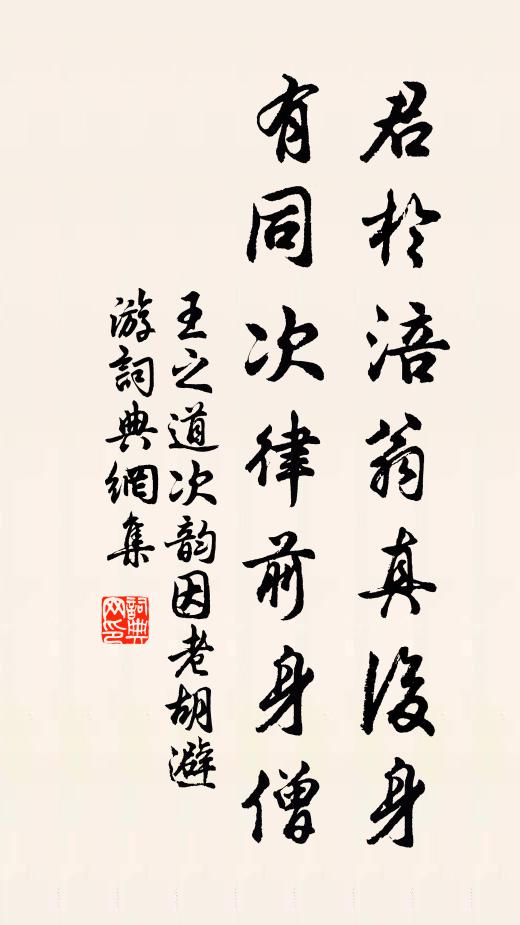 君於涪翁真後身
有同次律前身僧
王之道次韵因老胡避
游詞典網集
詞典网印